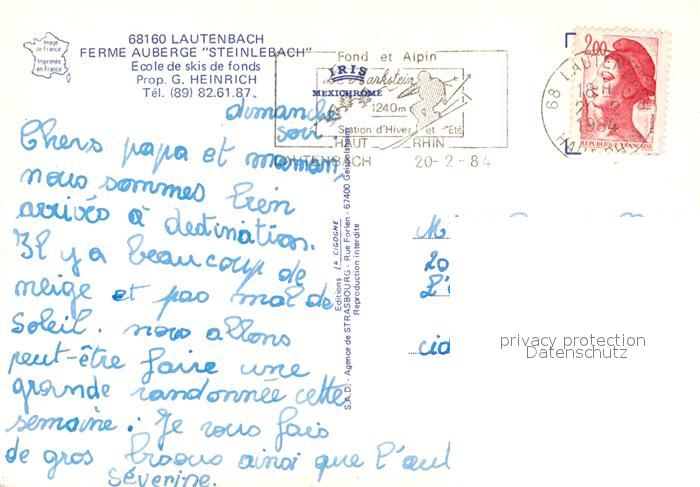 Image
de France
Imprimée
en France
68160 LAUTENBACH
FERME AUBERGE "STEINLEBACH"
Ecole de skis de fonds
Prop. G. HEINRICH
Tél. (89) 82.61.87
Fond et Alpin
Le Markstein
1240m
Station d'Hiver et d'Eté
HAUT RHIN
LAUTENBACH 20-2-84
IRIS
MEXICHROME
68 LAUTEN
18 H
1984
HAUT-RHIN
2,00
REPUBLIQUE FRANÇAISE
dimanche
soir.
Chers papa et maman,
nous sommes bien
arrivés à destination.
Il y a beaucoup de
neige et pas mal de
soleil. nous allons
peut-être faire une
grande randonnée cette
semaine. Je vous fais
de gros bisous ainsi que l'aut
Séverine.
Editions LA CIGOGNE
S.A.D. - Agence de STRASBOURG - Rue Forlen - 67400 Geispolsheim
Reproduction interdite
M
20
L'
cid
privacy protection
Datenschutz